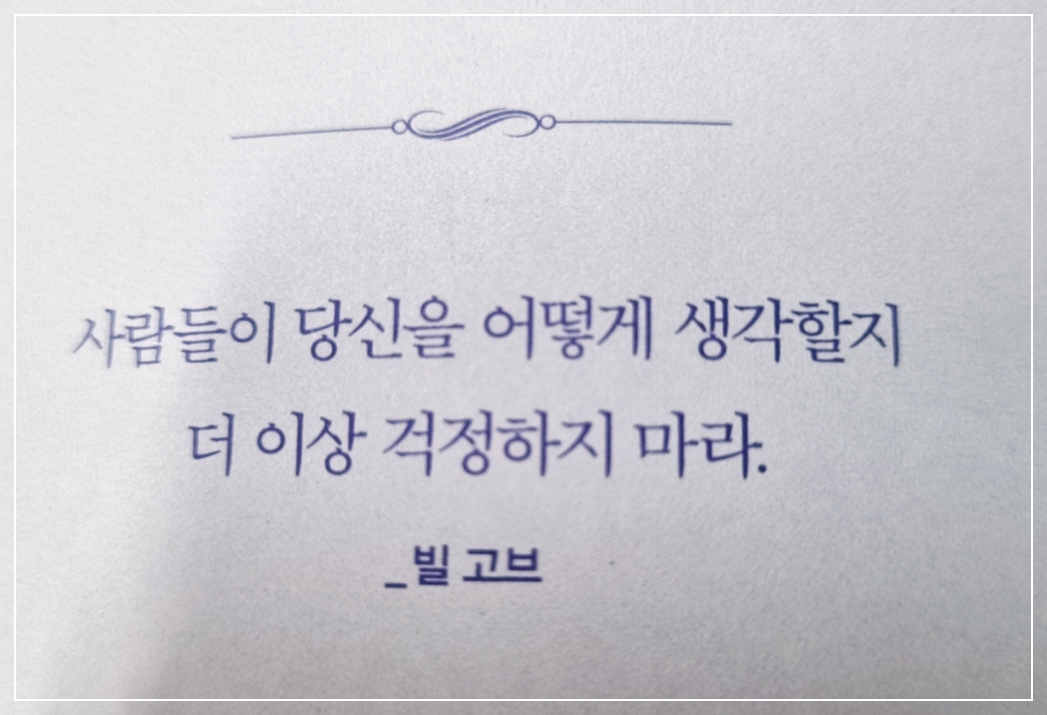 사람들이 당신을 어떻게 생각할지
더 이상 걱정하지 마라.
_빌 고브